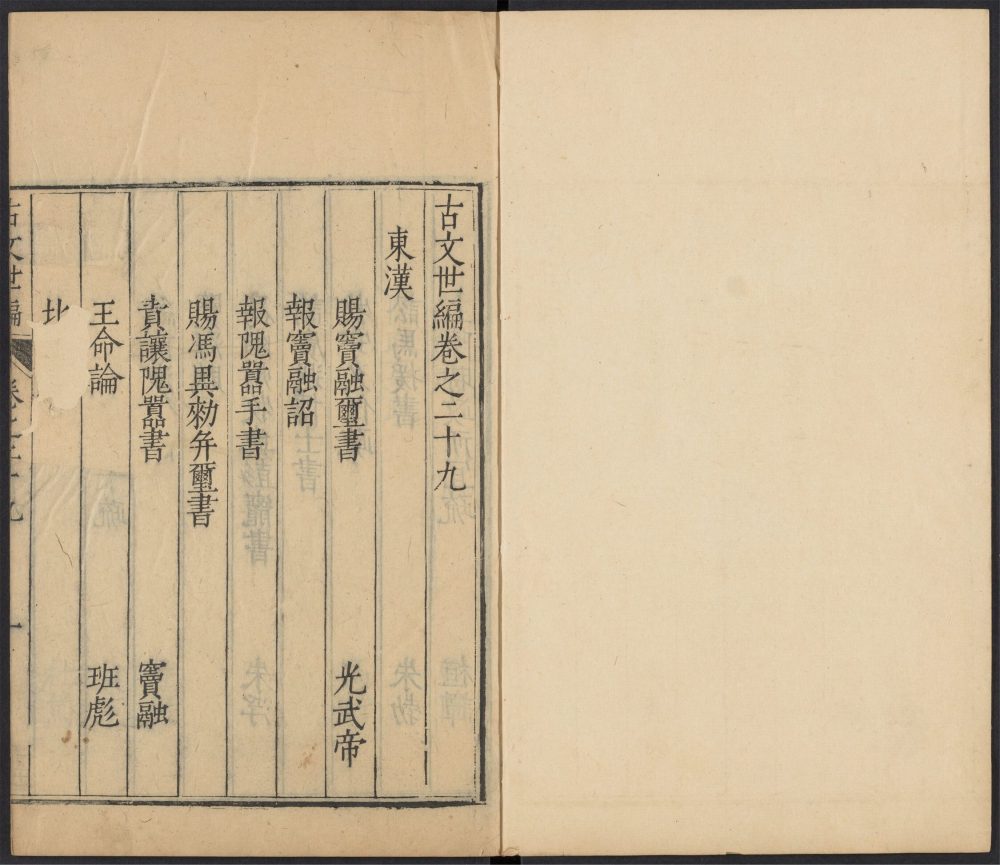 古文世編卷之二十九
東漢
賜竇融璽書 光武帝
報竇融詔
報隗囂手書
賜馮異勑并璽書
責讓隗囂書 竇融
王命論 班彪
北
古文世編 卷之二十九 一